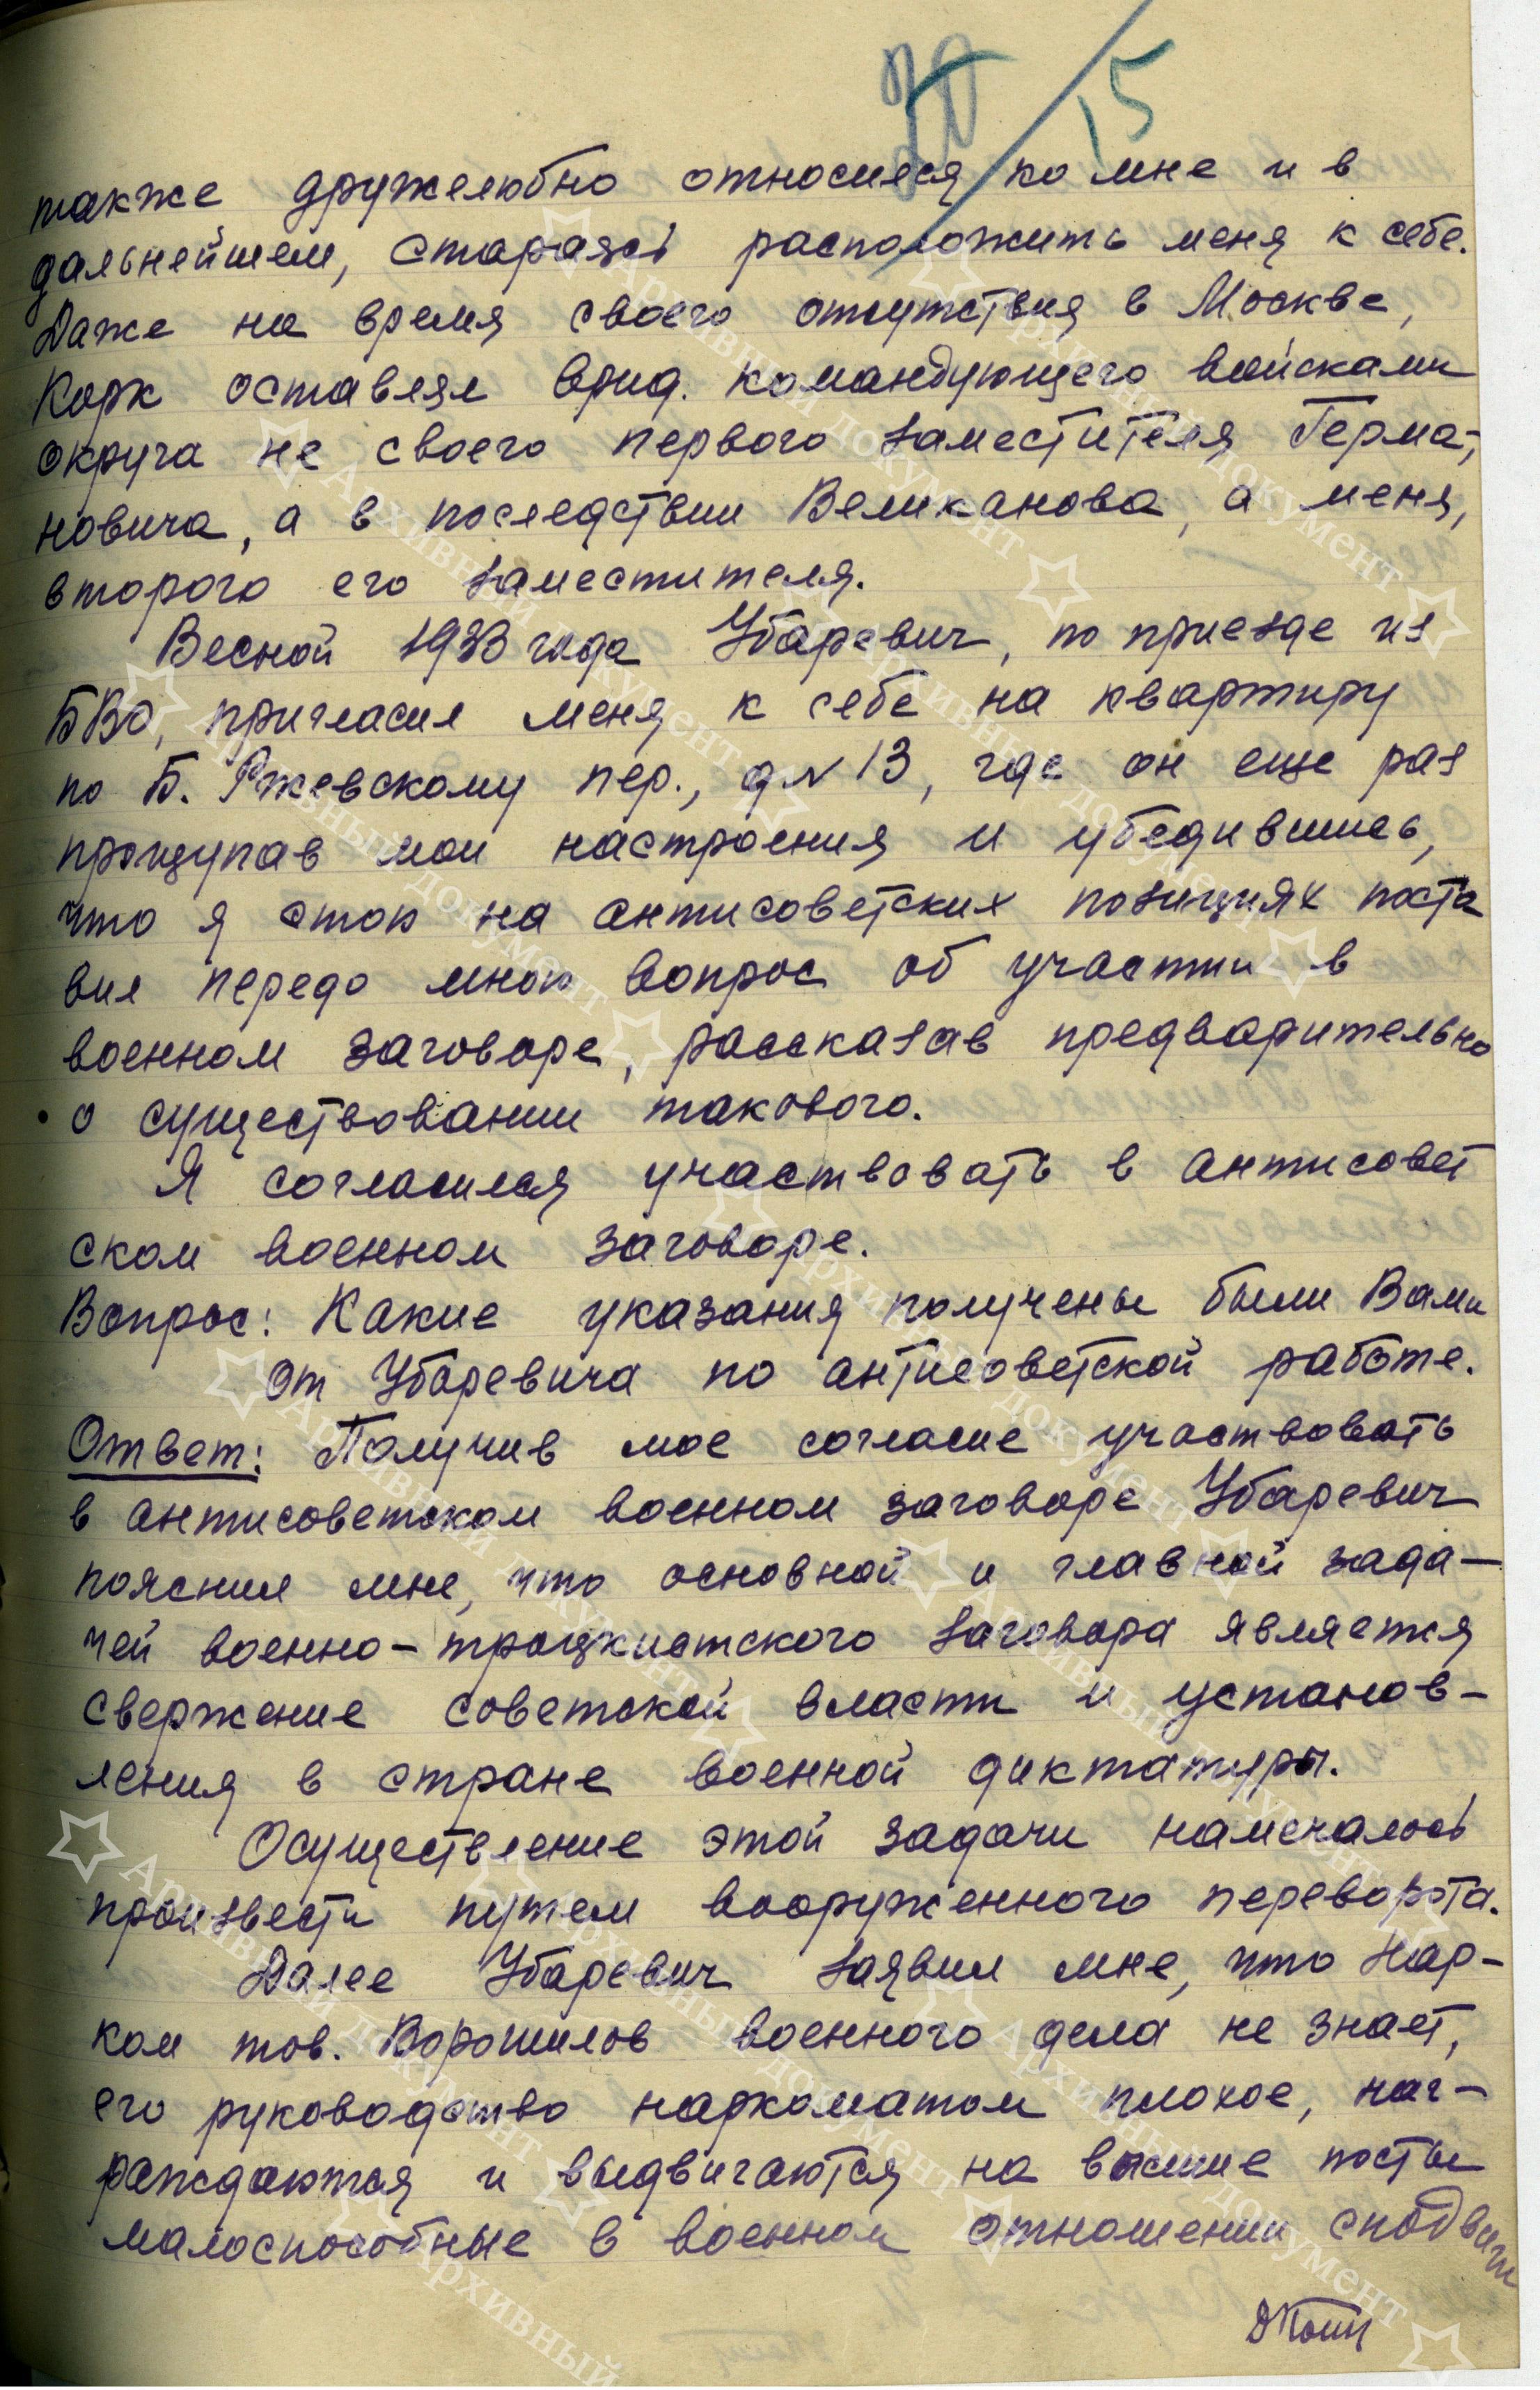 15
также дружелюбно относился ко мне и в
дальнейшем, стараясь расположить меня к себе.
Даже на время своего отсутствия в Москве,
Корк оставлял врид. командующего войсками
округа не своего первого заместителя Герма-
новича, а в последствии Великанова, а меня,
второго его заместителя.
Весной 1933 года Убаревич, по приезде из
БВО, пригласил меня к себе на квартиру
по Б. Ржевскому пер., д № 13, где он еще раз
прощупав мои настроения и убедившись,
что я стою на антисоветских позициях поста
вил передо мною вопрос об участии в
военном заговоре, рассказав предварительно
о существовании такового.
Я согласился участвовать в антисовет
ском военном заговоре.
Вопрос: Какие указания получены были Вами
от Убаревича по антисоветской работе.
Ответ: Получив мое согласие участвовать
в антисоветском военном заговоре Убаревич
пояснил мне, что основной и главной зада-
чей военно-троцкистского заговора является
свержение советской власти и установ-
ления в стране военной диктатуры.
Осуществление этой задачи намечалось
произвести путем вооруженного переворота.
Далее Убаревич заявил мне, что Нар-
ком тов. Ворошилов военного дела не знает,
его руководство наркоматом плохое, наг-
раждаются и выдвигаются на высшие посты
малоспособные в военном отношении сподвижн
Архивный документ